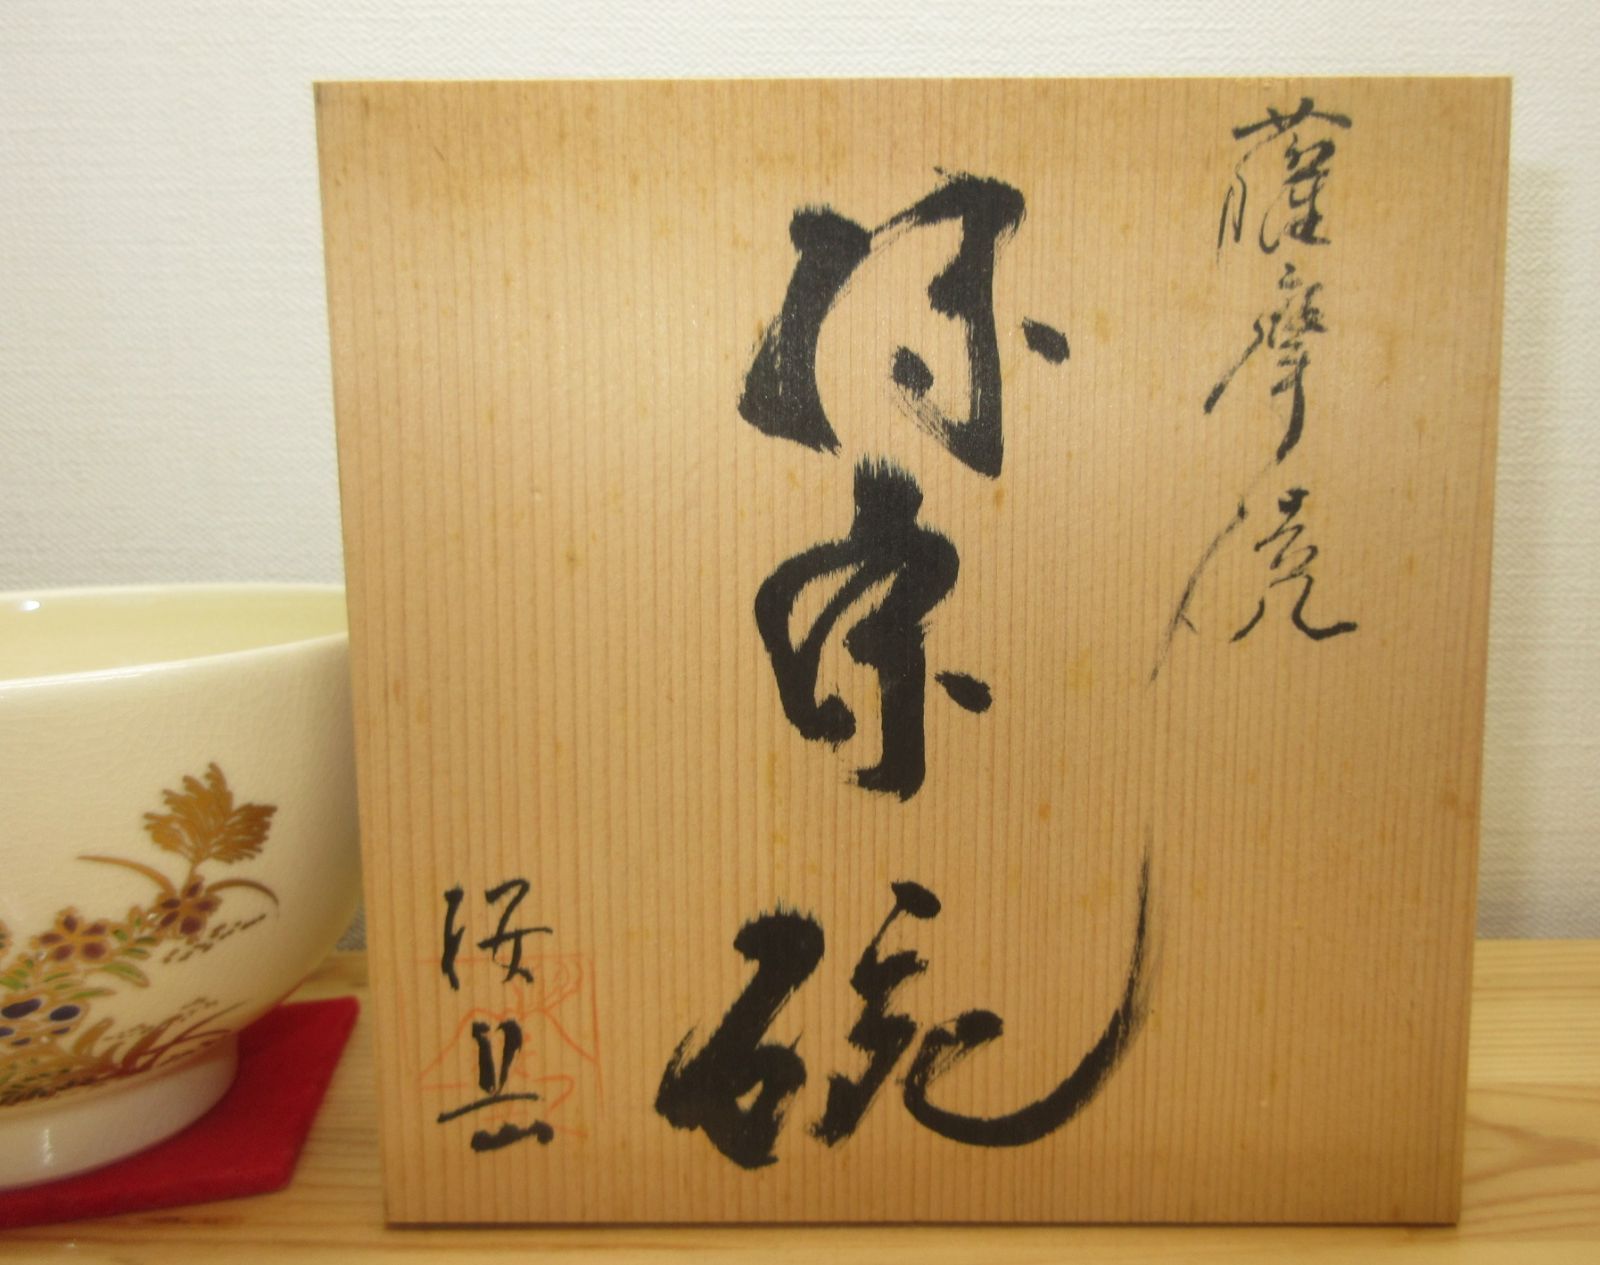 薩摩焼
茶碗
桜岳